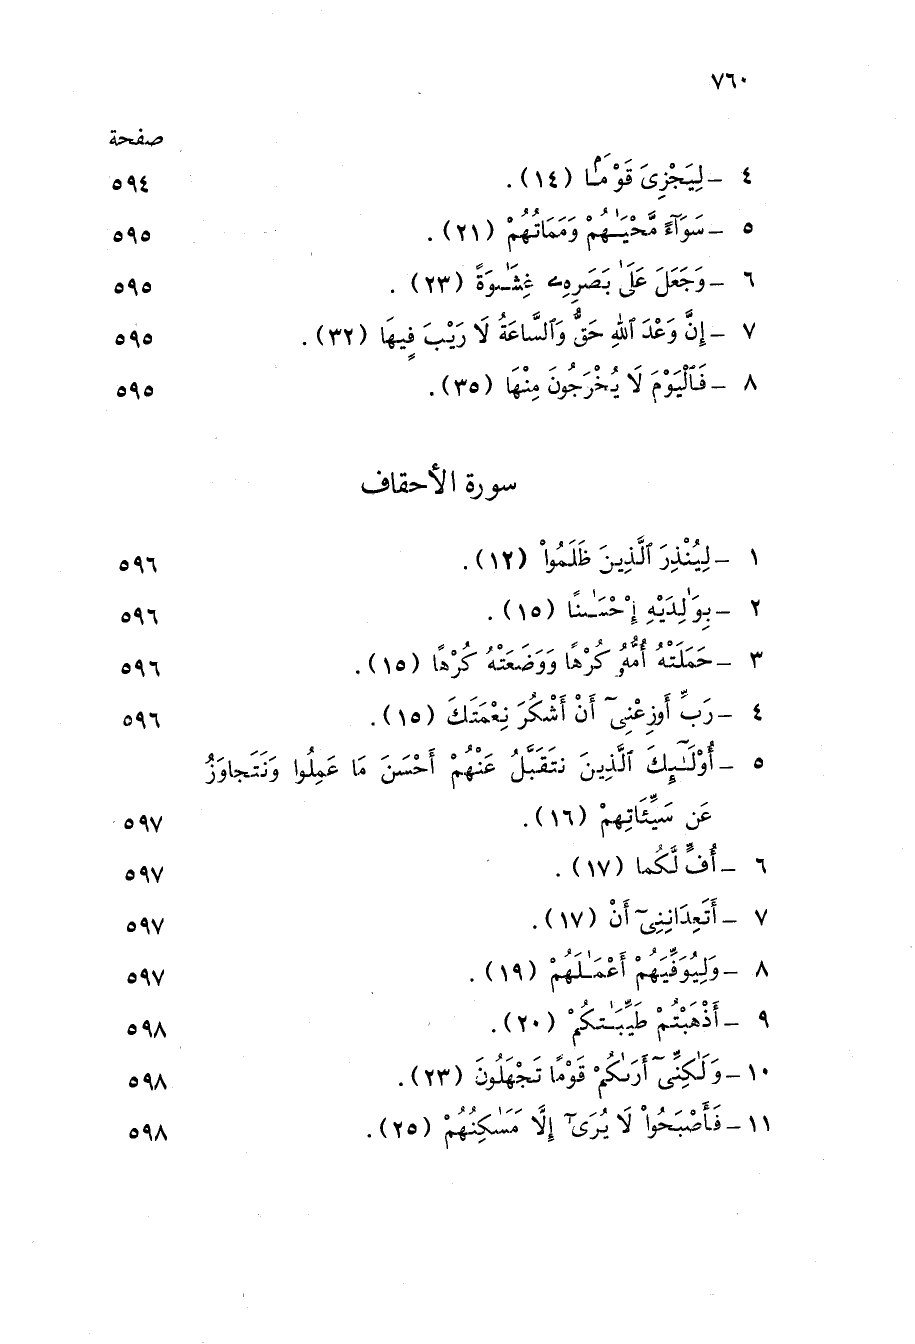 ٧٦٠
صفحة
٤ ــ لِيَجْزِىَ قَوْمَۢا (١٤). ٥٩٤
٥ ــ سَوَآءً مَّحْيَـٰهُمْ وَمَمَاتُهُمْ (٢١). ٥٩٥
٦ ــ وَجَعَلَ عَلَىٰ بَصَرِهِۦ غِشَـٰوَةً (٢٣). ٥٩٥
٧ ــ إِنَّ وَعْدَ ٱللهِ حَقٌّ وَٱلسَّاعَةُ لَا رَيْبَ فِيهَا (٣٢). ٥٩٥
٨ ــ فَٱلْيَوْمَ لَا يُخْرَجُونَ مِنْهَا (٣٥). ٥٩٥
سورة الأحقاف
١ ــ لِيُنْذِرَ ٱلَّذِينَ ظَلَمُواْ (١٢). ٥٩٦
٢ ــ بِوَٰلِدَيْهِ إِحْسَـٰنًا (١٥). ٥٩٦
٣ ــ حَمَلَتْهُ أُمُّهُۥ كُرْهًا وَوَضَعَتْهُ كُرْهًا (١٥). ٥٩٦
٤ ــ رَبِّ أَوزِعْنِىٓ أَنْ أَشْكُرَ نِعْمَتَكَ (١٥). ٥٩٦
٥ ــ أُوْلَـٰٓئِكَ ٱلَّذِينَ نتَقَبَّلُ عَنْهُمْ أَحْسَنَ مَا عَمِلُوا وَنَتَجاوَزُ
عَن سَيِّئَاتِهِمْ (١٦). ٥٩٧
٦ ــ أُفٍّ لَّكُما (١٧). ٥٩٧
٧ ــ أَتَعِدَانِنِىٓ أَنْ (١٧). ٥٩٧
٨ ــ وَلِيُوَفِّيَهُمْ أَعْمَـٰلَهُمْ (١٩). ٥٩٧
٩ ــ أَذْهَبْتُمْ طَيِّبَـٰتِكُمْ (٢٠). ٥٩٨
١٠ ــ وَلَـٰكِنِّىٓ أَرَىٰكُمْ قَوْمًا تَجْهَلُونَ (٢٣). ٥٩٨
١١ ــ فَأَصْبَحُواْ لَا يُرَىٰٓ إِلَّا مَسَـٰكِنُهُمْ (٢٥). ٥٩٨